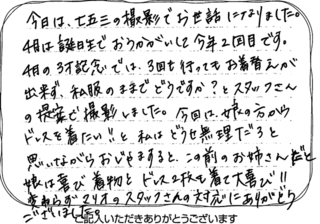 今日は、七五三の撮影でお世話になりました。
4月は誕生日でおうかがいして今年2回目です。
4月の3才記念では、3回も行ってもお着替えが
出来ず、私服のままでどうですか？とスタッフさん
の提案で撮影しました。今回は、娘の方から
ドレスを着たい!!と私はどうせ無理だろと
思いながらおじゃますると、この前のお姉さんだと
娘は喜び着物とドレス2枚も着て大喜び!!
変わらずマリオのスタッフさんの対応にありがとう
ございました。
ご記入いただきありがとうございます